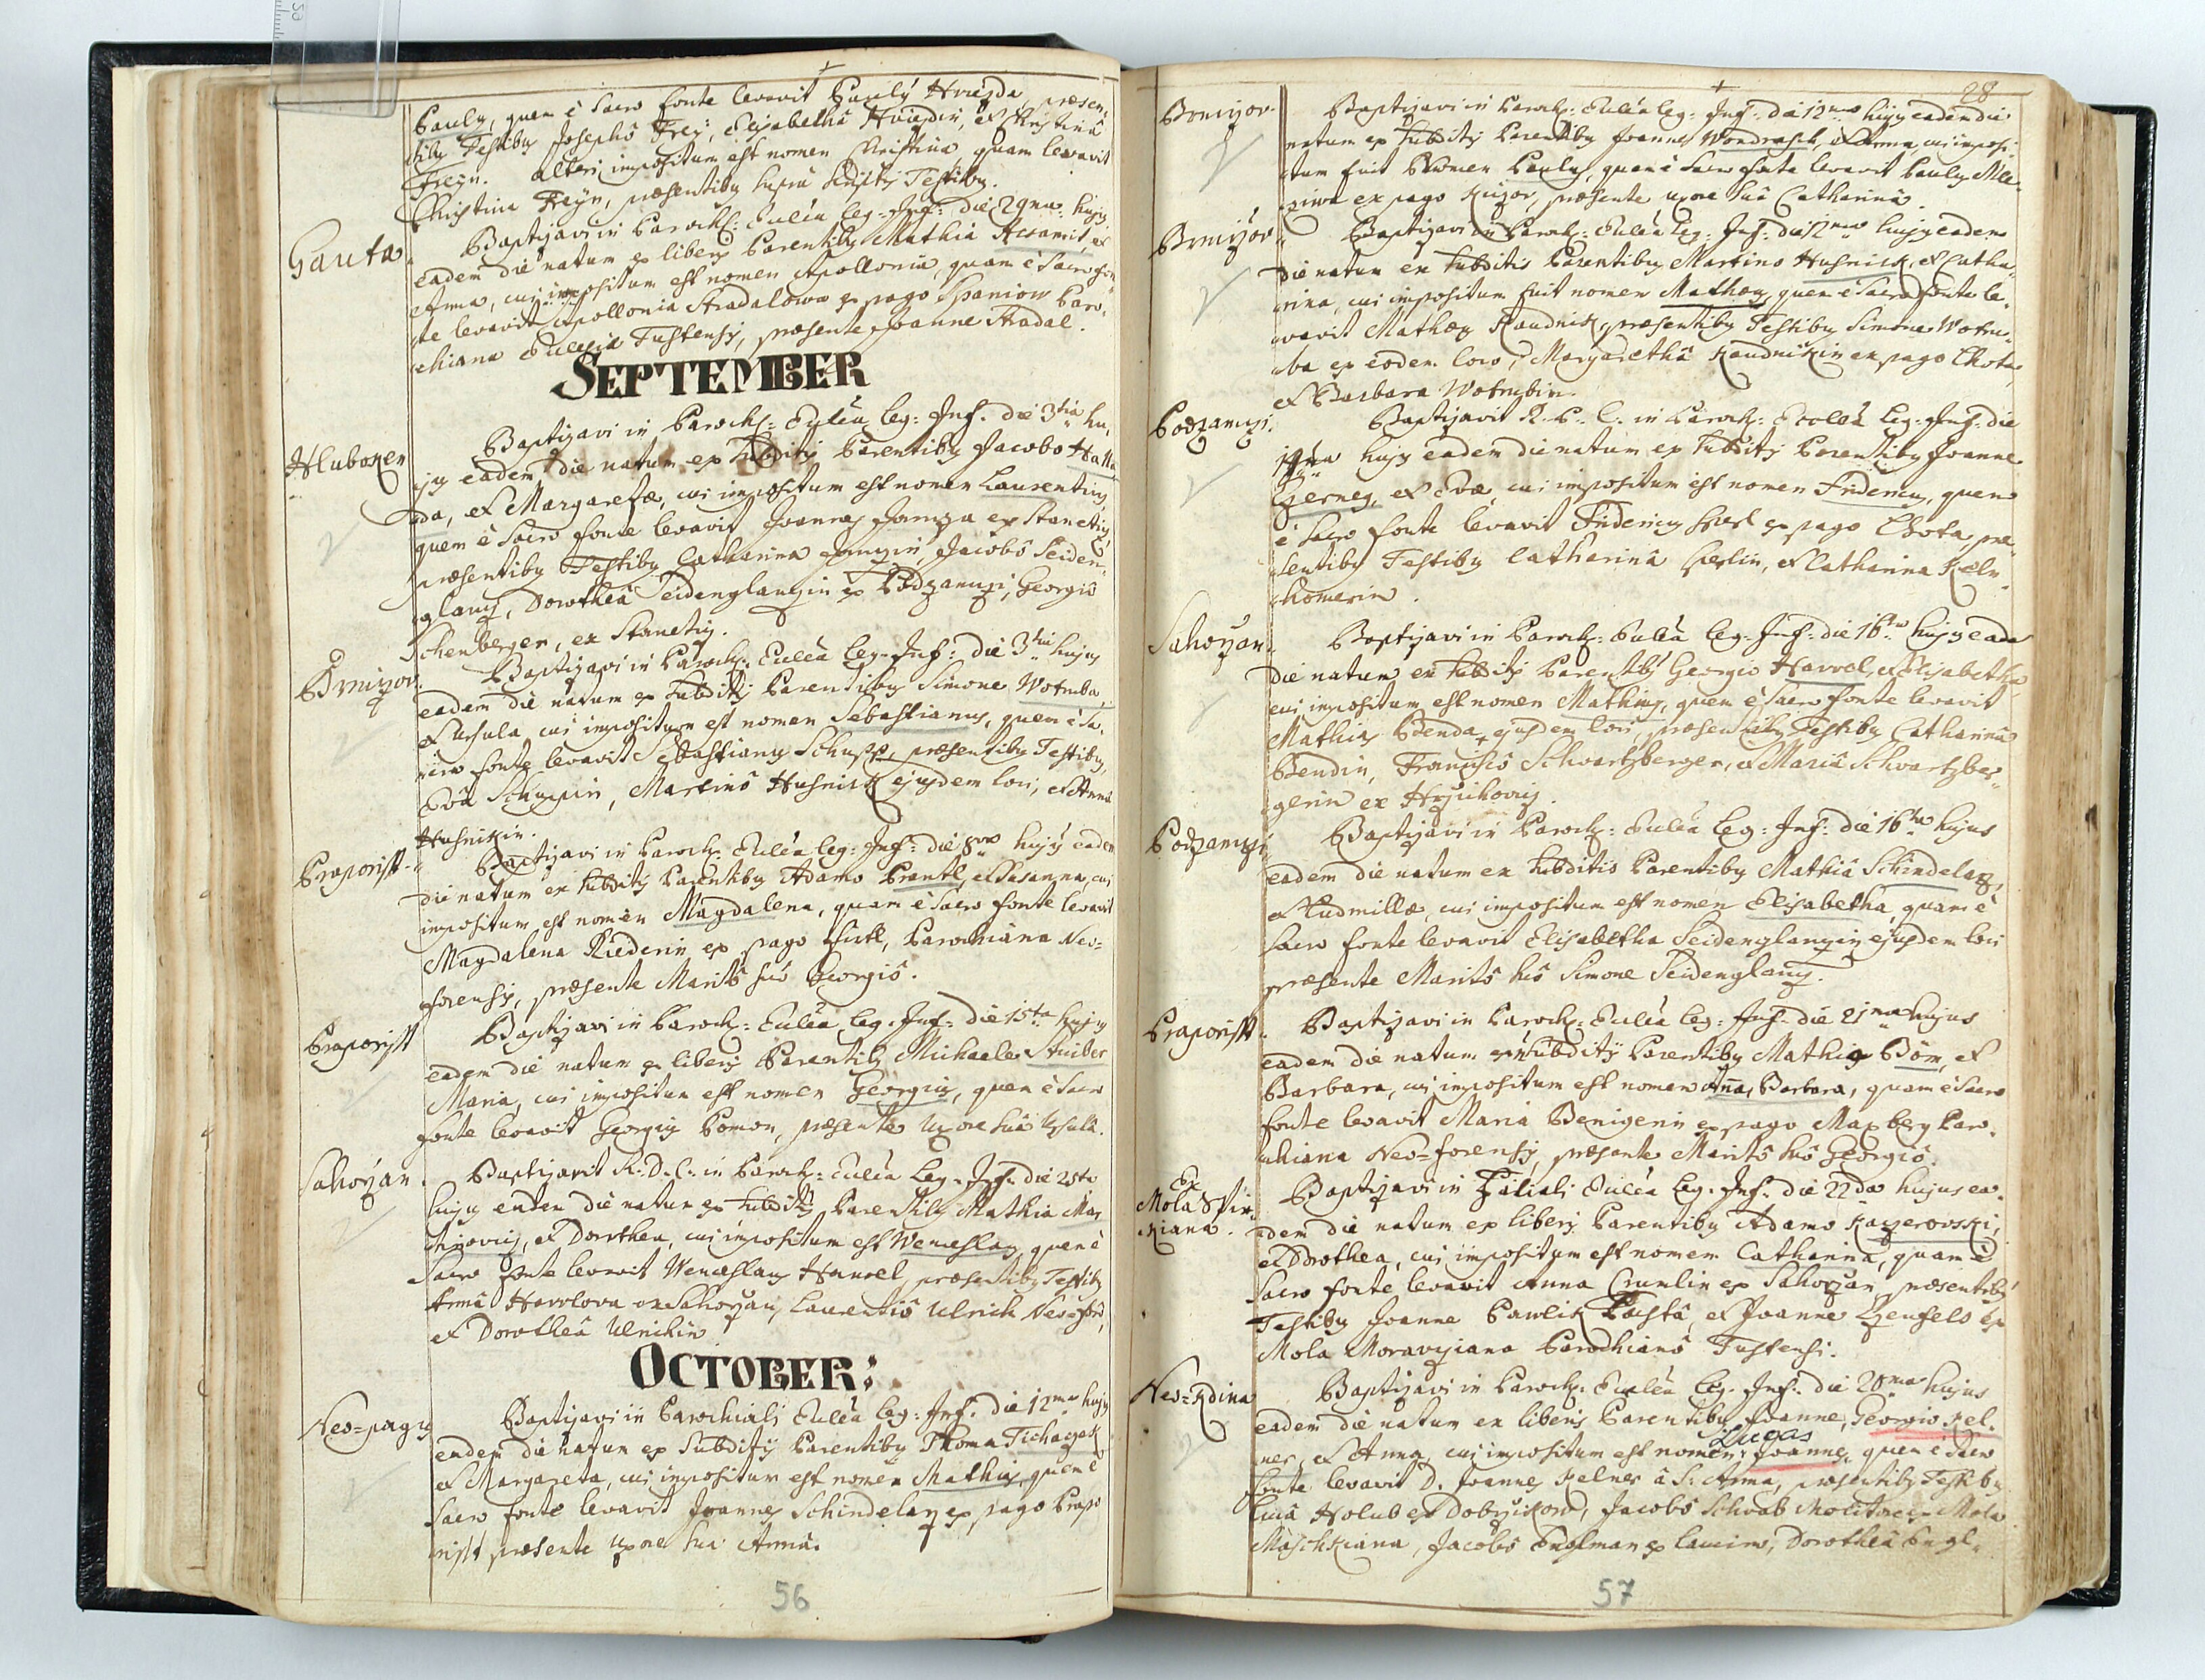 Pauly, quem è Sacro fonte levavit Pauly Hviezda, præsen-
tiby Testiby Josephô Frey, Elisabethâ Hviezdin, et Christinâ
Freyn. Alteri impositum est nomen Christina quam levavit
Christina Freyn, præsentiby supra scriptis Testiby.
Gauta
Baptizavi in Paroch: Eccl͠ea Leg: Inf: die 29na hujy
eadem die natum ex liberis Parentiby Mathia Acsamit, et
Anna, cui impositum est nomen Apollonia, quam è Sacro fon-
te levavit Apollonia Stradalowa ex pago Spaniow Paro-
chiana Tustensis, præsente Joanne Stradal.
SEPTEMBER
Hluboken
Baptizavi in Paroch: Eccl͠ea Leg: Inf: die 3tia hu-
jy eadem die natum ex Subditis Parentiby Jacobo
et Margaretæ, cui impositum est nomen Laurentius,
quem è Sacro fonte levavit Joannes Jamza ex Stanetiz,
præsentiby Testiby Catharina Jamzin, Jacobô Seiden-
glanz, Dorotheâ Seidenglanzin ex Podzamczi, Georgiô
Schenberger, ex Stanetiz.
Brnirzow.
Baptizavi in Paroch: Eccl͠ea Leg: Inf: die 3tia hujus
eadem die natum ex Subditis Parentiby Simone Wotruba,
et Ursula, cui impositum est nomen Sebastianus, quem è Sa-
cro fonte levavit Sebastiany Schuster, præsentiby Testiby,
Evâ, Martinô Husnick ejusdem loci, et Anna
Husnikin.
Praporist.
Baptizavi in Paroch: Eccl͠ea Leg: Inf: die 8va hujy eadem
die natum ex Subditis Parentiby Adamo Prantl, et Susanna, cui
impositum est nomen Magdalena, quam è Sacro fonte levavit
Magdalena Riederin ex pago Fistl, Parochiana Neo=
forensis, præsente Maritô suô Georgiô.
Praporist
Baptizavi in Paroch: Eccl͠ea Leg: Inf: die 15ta hujy
eadem die natum ex liberis Parentiby Michaele Stuiber
Maria, cui impositum est nomen Georgius, quem è Sacro
fonte levavit Georgius Pomon, præsente Uxore suâ Ursula.
Sahorzan.
Baptizavit R: D: C: in Paroch: Eccl͠ea Leg: Inf: die 25ta
hujy eadem die natum ex Subditis Parentiby Mathia
et Dorothea, cui impositum est Wenceslay, quem è
Sacro fonte levavit Wenceslay Havvel, præsentiby Testiby
Annâ Havvlova ex Sahorzan, Laurentiô Ulrich Neo=foro,
et Dorotheâ Ulrichin
OCTOBER:
Neo=pagy
Baptizavi in Parochiali Eccl͠ea Leg: Inf: die 12ma hujy
eadem die natum ex Subditis Parentiby Thoma Tichaczek
et Margareta, cui impositum est nomen Mathias, quem è
Sacro fonte levavit Joannes Schindelarz ex pago Prapo
rist præsente uxore sua Annâ.
56
28
Brnirzow.
Baptizavi in Paroch: Eccl͠ea Leg: Inf: die 12ma hujy eadem die
natum ex Subditis Parentiby Joanne Wondraschk, et Anna, cui imposi-
tum fuit Nomen Pauly, quem è Sacro fonte levavit Pauly
ex pago, præsente uxore suâ Catharinâ.
Brnirzow
Baptizavi in Paroch: Eccl͠ea Leg: Inf: die 12ma hujy eadem
die natum ex Subditis Parentibus Martino Husnick, et Catha-
rina, cui impositum fuit nomen Mathæy, quem è Sacro fonte le-
vavit Mathæy Raudnik, præsentiby Testiby Simone Wotru-
ba ex eodem loco, Margarethâ Raudnikin ex pago Lhota,
et Barbara Wotrubin.
Podzamczi.
Baptizavit R. P. C. in Paroch: Eccl͠ea Leg: Inf: die
hujy eadem die natum ex Subditis Parentiby Joanne
Czerney, et Eva, cui impositum est nomen Fridericus, quem
è Sacro fonte levavit Fridericus ex pago Lhota, præ-
sentiby Testiby Catharinâ, et Catharina
Sahorzan.
Baptizavi in Paroch: Eccl͠ea Leg: Inf: die 16ta hujy eade
die natum ex Subditis Parentiby Georgio Havvel, et Elisabetha
cui impositum est nomen Mathias, quem è Sacro fonte levavit
Mathias Benda, ejusdem loci, præsentiby Testiby Catharinâ
Bendin, Franciscô Schwartzberger, et Mariâ Schwartzber-
gerin ex Hrzichowiz.
Podzamczi
Baptizavi in Paroch: Eccl͠ea Leg: Inf: die 16ta hujus
eadem die natum ex Subditis Parentiby Mathiâ Schindelarz,
et Ludmillæ, cui impositum est nomen Elisabetha, quam è
Sacro fonte levavit Elisabetha Seidenglanzin ejusdem loci
præsente Maritô suô Simone Seidenglanz.
Praporist.
Baptizavi in Paroch: Eccl͠ea Leg: Inf: die 21ma hujus
eadem die natum ex Subditis Parentiby Mathia Böm, et
Barbara, cui impositum est nomen Añna Barbara, quam è Sacro
fonte levavit Maria Benigerin ex pago Maxberg Paro-
chiana Neo=forensis, præsente Maritô suô Georgiô.
Ex
Mola Spir-
kiana.
Baptizavi in Filiali Eccl͠ea Leg: Inf: die 22da hujus ea-
dem die natum ex liberis Parentiby Adamo Kaczerovski,
et Dorothea, cui impositum est nomen Catharina, quam è
Sacro fonte levavit Anna Crumlin ex Sahorzan, præsentiby
Testiby Joanne Pawlik, et Joanne ex
Mola Moravziana Parochianô Tustensi.
Neo=Kdina
Baptizavi in Paroch: Eccl͠ea Leg: Inf: die 28va hujus
eadem die natum ex liberis Parentiby Joanne, Georgio Kel-
ner, et Anna, cui impositum est nomen Lucas Joannes, quem è Sacro
fonte levavit D. Joannes Kelner à S: Anna, præsentiby Testiby
Lucâ Holub ex Dobrzikow, Jacobô Schvab Molitore ex Mola
Maschkiana, Jacobô Englman ex Laucim, Dorotheâ Engl-
57